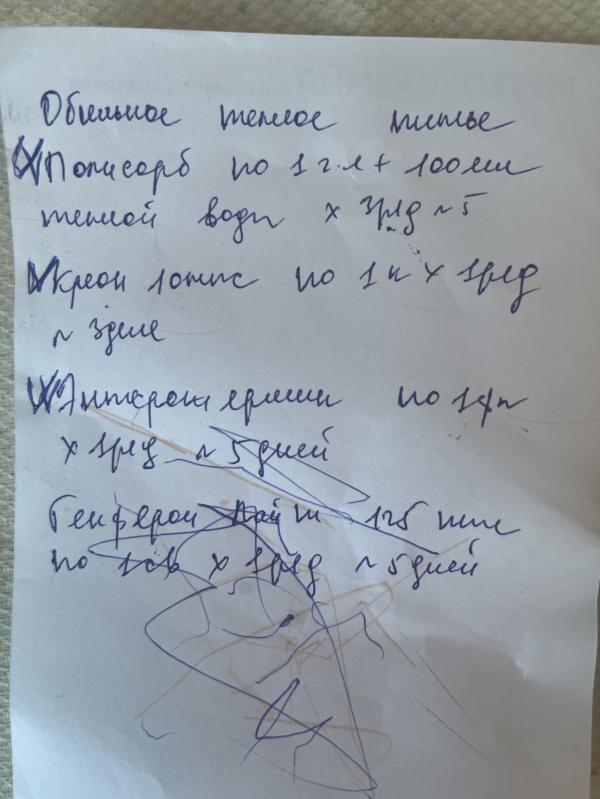 Обильное теплое питье
Полисорб по 1 г.л + 100 мл
теплой воды х 3р/д ~ 5
Креон 10тыс по 1к х 1р/д
~ 3дня
Энтерожермина по 1фл
х 1р/д ~ 5 дней
Генферон лайт 125 тыс
по 1св х 1р/д ~ 5 дней